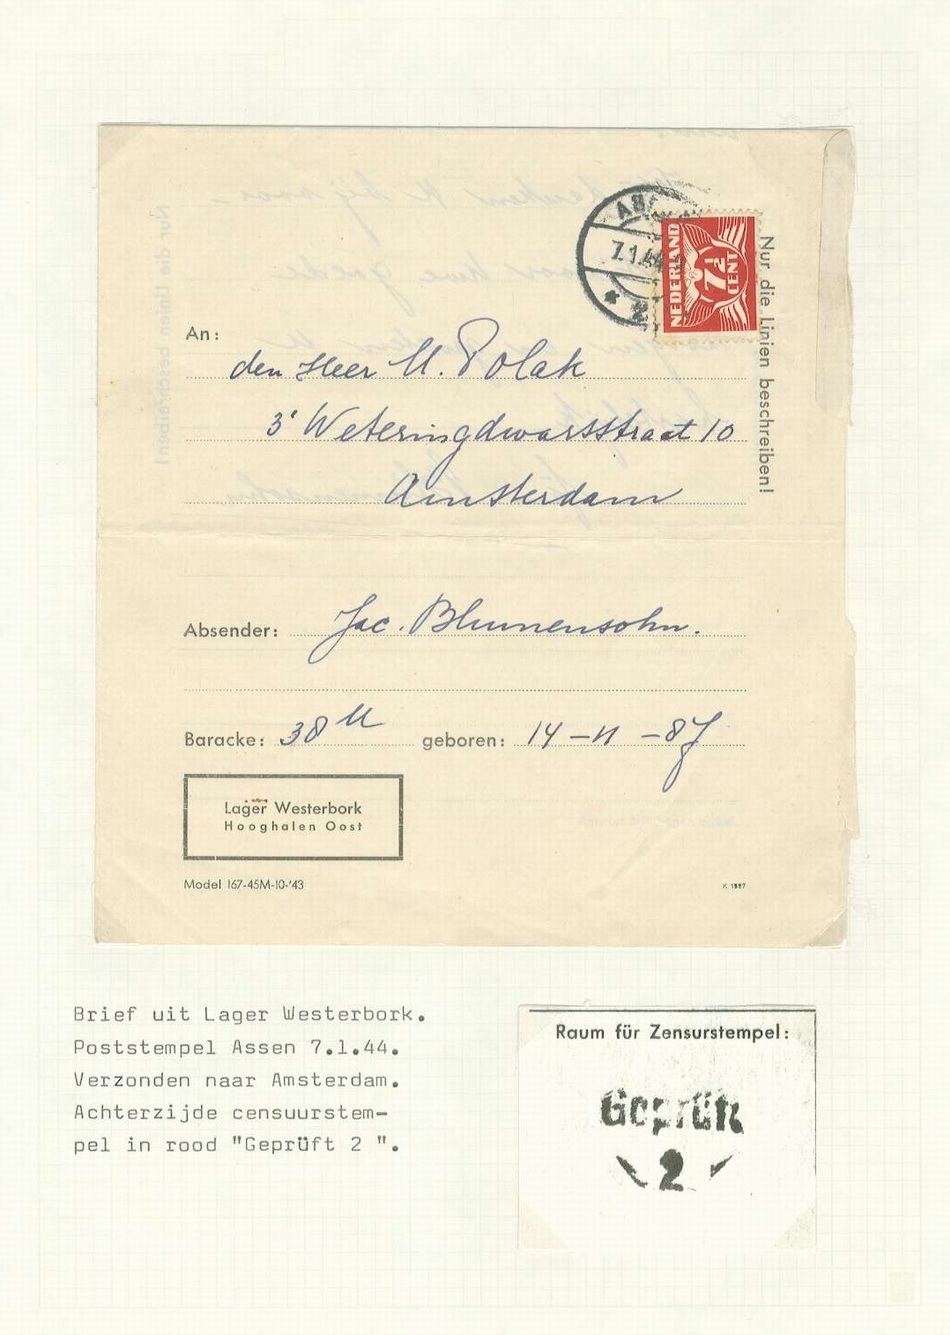 ASS
7.1.44
2
NEDERLAND
7½
CENT
Nur die Linien beschreiben!
An:
den Heer M. Polak
3e Weteringdwarsstraat 10
Amsterdam
Absender: Jac. Blumensohn.
Baracke: 38 M geboren: 14-11-87
Lager Westerbork
Hooghalen Oost
Model 167-45M-10-'43
K 1527
Brief uit Lager Westerbork.
Poststempel Assen 7.1.44.
Verzonden naar Amsterdam.
Achterzijde censuurstem-
pel in rood "Geprüft 2 ".
Raum für Zensurstempel:
Geprüft
2